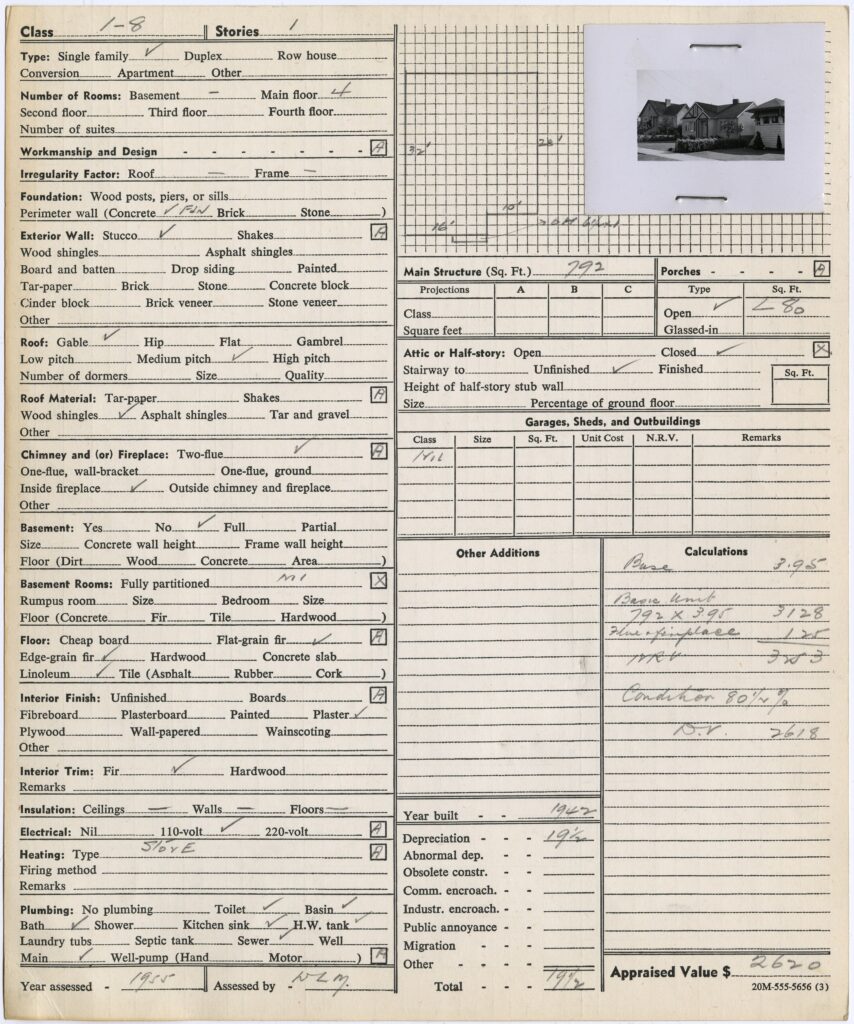 Class 1-8 Stories 1
Type: Single family ✓ Duplex Row house
Conversion Apartment Other
Number of Rooms: Basement – Main floor 4
Second floor Third floor Fourth floor
Number of suites
Workmanship and Design - - - - - - - A
Irregularity Factor: Roof — Frame —
Foundation: Wood posts, piers, or sills
Perimeter wall (Concrete ✓ Brick Stone )
Exterior Wall: Stucco ✓ Shakes A
Wood shingles Asphalt shingles
Board and batten Drop siding Painted
Tar-paper Brick Stone Concrete block
Cinder block Brick veneer Stone veneer
Other
Roof: Gable ✓ Hip Flat Gambrel
Low pitch Medium pitch ✓ High pitch
Number of dormers Size Quality
Roof Material: Tar-paper Shakes A
Wood shingles ✓ Asphalt shingles Tar and gravel
Other
Chimney and (or) Fireplace: Two-flue ✓ A
One-flue, wall-bracket One-flue, ground
Inside fireplace ✓ Outside chimney and fireplace
Other
Basement: Yes No ✓ Full Partial
Size Concrete wall height Frame wall height
Floor (Dirt Wood Concrete Area )
Basement Rooms: Fully partitioned X
Rumpus room Size Bedroom Size
Floor (Concrete Fir Tile Hardwood )
Floor: Cheap board Flat-grain fir ✓ A
Edge-grain fir ✓ Hardwood Concrete slab
Linoleum ✓ Tile (Asphalt Rubber Cork )
Interior Finish: Unfinished Boards A
Fibreboard Plasterboard Painted Plaster ✓
Plywood Wall-papered Wainscoting
Other
Interior Trim: Fir ✓ Hardwood
Remarks
Insulation: Ceilings — Walls — Floors —
Electrical: Nil 110-volt ✓ 220-volt A
Heating: Type STOVE A
Firing method
Remarks
Plumbing: No plumbing Toilet ✓ Basin ✓
Bath ✓ Shower Kitchen sink ✓ H.W. tank ✓
Laundry tubs Septic tank Sewer ✓ Well
Main ✓ Well-pump (Hand Motor ) A
Year assessed - 1955 Assessed by - D.L.M.
32'
28'
10'
16'
Main Structure (Sq. Ft.) 792 Porches - - - - A
Projections A B C Type Sq. Ft.
Class Open ✓ L 80
Square feet Glassed-in
Attic or Half-story: Open Closed ✓ X
Stairway to Unfinished ✓ Finished Sq. Ft.
Height of half-story stub wall
Size Percentage of ground floor
Garages, Sheds, and Outbuildings
Class Size Sq. Ft. Unit Cost N.R.V. Remarks
Nil
Other Additions
Calculations
Base 3.95
Basic Unit
792 X 3.95 3128
Flue & fireplace 125
NRV 3253
Condition 80 1/2 %
D.V. 2618
Year built - - 1942
Depreciation - - - 19 1/2
Abnormal dep. - -
Obsolete constr. - -
Comm. encroach. - -
Industr. encroach. - -
Public annoyance - -
Migration - -
Other - - - -
Total - - - 19 1/2
Appraised Value $ 2620
20M-555-5656 (3)